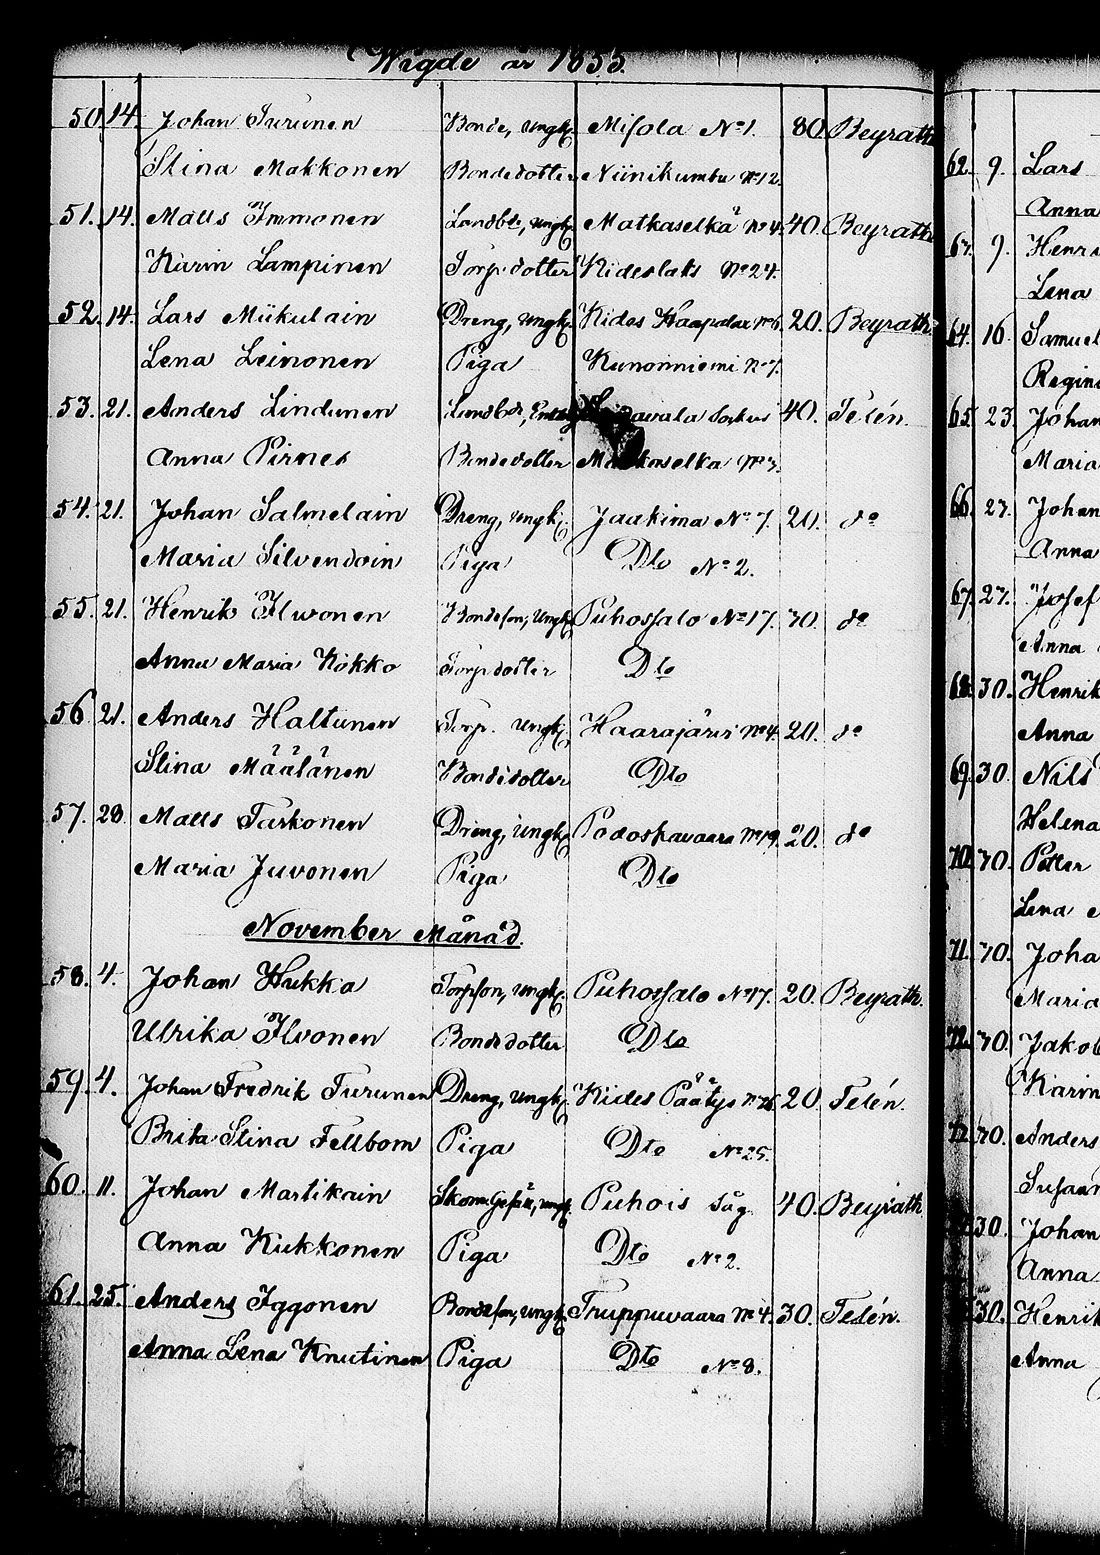 Wigde år 1855.
50. 14. Johan Turunen Bonde, Ungk. Misola No 1. 80. Beyrath
Stina Makkonen Bondedotter Niinikumbu No 12.
51. 14. Matts Immonen Landbde, Ungk. Matkaselkä No 4. 40. Beyrath
Karin Lampinen Torp. dotter Kideslaks No 24.
52. 14. Lars Miikulain Dreng, Ungk. Kides Haapalax No 6. 20. Beyrath
Lena Leinonen Piga Kunonniemi No 7.
53. 21. Anders Lindunen Landbde, 40. Telén.
Anna Pirnes Bondedotter Matkaselka No 3.
54. 21. Johan Salmelain Dreng, Ungk. Jaakima No 7. 20. do
Maria Silvendoin Piga Dto No 2.
55. 21. Henrik Ilwonen Bondeson, Ungk. Puhossalo No 17. 70. do
Anna Maria Kokko Torp dotter Dto
56. 21. Anders Haltunen Torp. Ungk. Haarajärvi No 4. 20. do
Stina Määtänen Bondedotter Dto
57. 28. Matts Tarkonen Dreng, Ungk. Podoskavaara No 19. 20. do
Maria Juvonen Piga Dto
November Månad.
58. 4. Johan Hukka Torpson, Ungk. Puhossalo No 17. 20. Beyrath.
Ulrika Ilvonen Bondedotter Dto
59. 4. Johan Fredrik Turunen Dreng, Ungk. Kides Päätys No 26. 20. Telén.
Brita Stina Fellbom Piga Dto No 25.
60. 11. Johan Martikain Skom. Gesäll, Ungk. Puhois Såg 40. Beyrath
Anna Kukkonen Piga Dto No 2.
61. 25. Anders Iggonen Bondeson, Ungk. Truppuvaara No 4. 30. Telén.
Anna Lena Knutinen Piga Dto No 8.
62. 9. Lars
Anna
9. Henri
Lena
64. 16. Samuel
Regin
65. 23. Johan
Maria
66. 27. Johan
Anna
67. 27. Josef
Anna
68. 30. Henrik
Anna
69. 30. Nils
Helena
70. 30. Petter
Lena
71. 30. Joha
Maria
72. 30. Jakob
Karin
30. Anders
Susann
30. Johan
Anna
30. Henrik
Anna